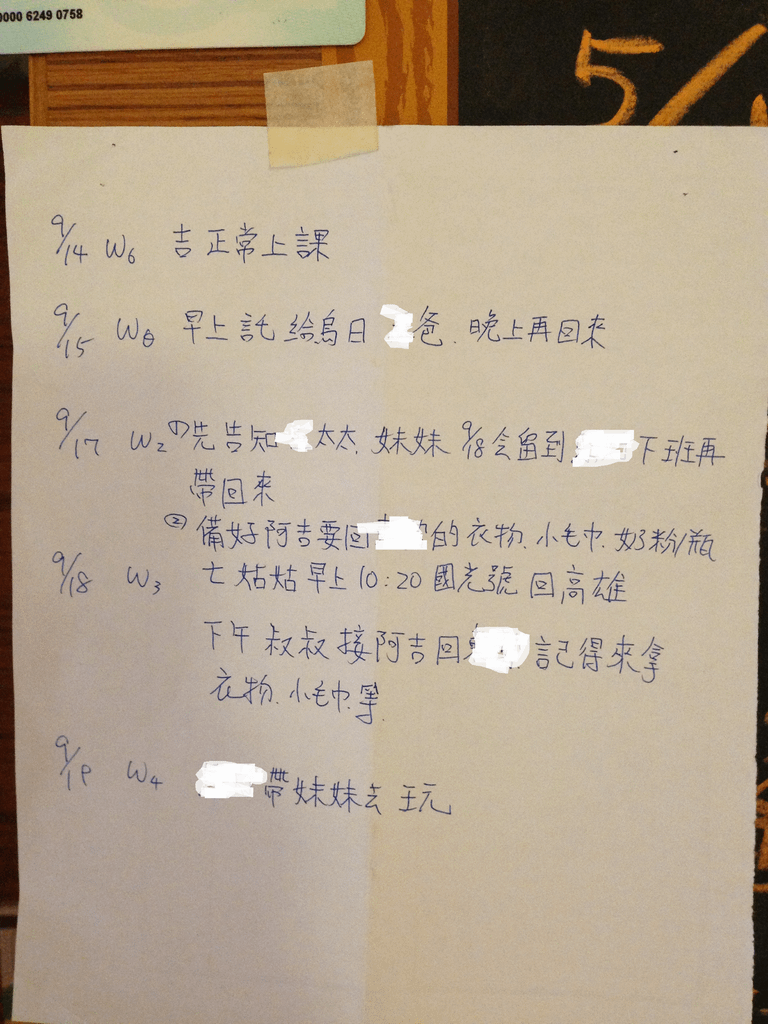 0000 6249 0758
5/1
9/14 W6 吉正常上課
9/15 W日 早上託給烏日 爸.晚上再回來
9/17 W2 ①先告知 太太.妹妹 9/18会留到 下班再
帶回來
②備好阿吉要回 的衣物.小毛巾.奶粉/瓶
9/18 W3 七姑姑早上10:20國光號回高雄
下午叔叔接阿吉回 記得來拿
衣物.小毛巾.等.
9/19 W4 帶妹妹去玩